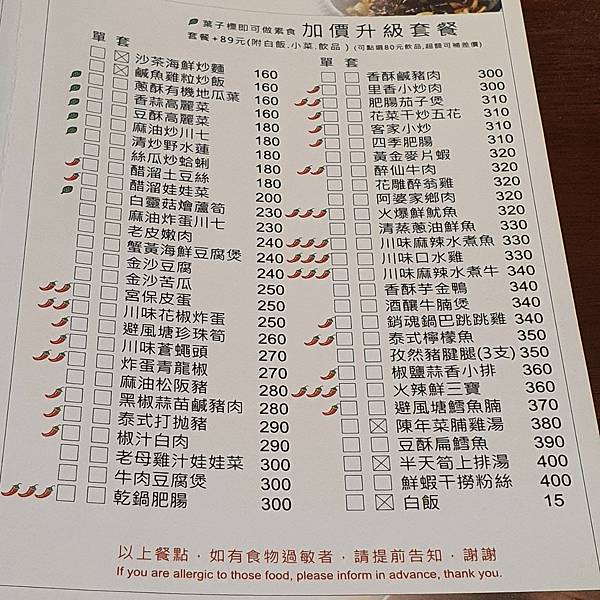 葉子標即可做素食 加價升級套餐
套餐+89元(附白飯.小菜.飲品) (可點購80元飲品,超額可補差價)
單 套
沙茶海鮮炒麵 160
鹹魚雞粒炒飯 160
蔥酥有機地瓜葉 160
香蒜高麗菜 160
豆酥高麗菜 180
麻油炒川七 180
清炒野水蓮 180
絲瓜炒蛤蜊 180
醋溜土豆絲 180
醋溜娃娃菜 200
白靈菇燴蘆筍 230
麻油炸蛋川七 230
老皮嫩肉 240
蟹黃海鮮豆腐煲 240
金沙豆腐 240
金沙苦瓜 250
宮保皮蛋 250
川味花椒炸蛋 250
避風塘珍珠筍 260
川味蒼蠅頭 270
炸蛋青龍椒 270
麻油松阪豬 280
黑椒蒜苗鹹豬肉 280
泰式打拋豬 290
椒汁白肉 290
老母雞汁娃娃菜 300
牛肉豆腐煲 300
乾鍋肥腸 300
單 套
香酥鹹豬肉 300
里香小炒肉 300
肥腸茄子煲 310
花菜干炒五花 310
客家小炒 310
四季肥腸 310
黃金麥片蝦 320
醉仙牛肉 320
花雕醉翁雞 320
阿婆家鄉肉 320
火爆鮮魷魚 320
清蒸蔥油鮮魚 330
川味麻辣水煮魚 330
川味口水雞 330
川味麻辣水煮牛 340
香酥芋金鴨 340
酒釀牛腩煲 340
銷魂鍋巴跳跳雞 340
泰式檸檬魚 350
孜然豬腱腿(3支) 350
椒鹽蒜香小排 360
火辣鮮三寶 360
避風塘鱈魚腩 370
陳年菜脯雞湯 380
豆酥扁鱈魚 390
半天筍上排湯 400
鮮蝦干撈粉絲 400
白飯 15
以上餐點，如有食物過敏者，請提前告知，謝謝
If you are allergic to those food, please inform in advance, thank you.